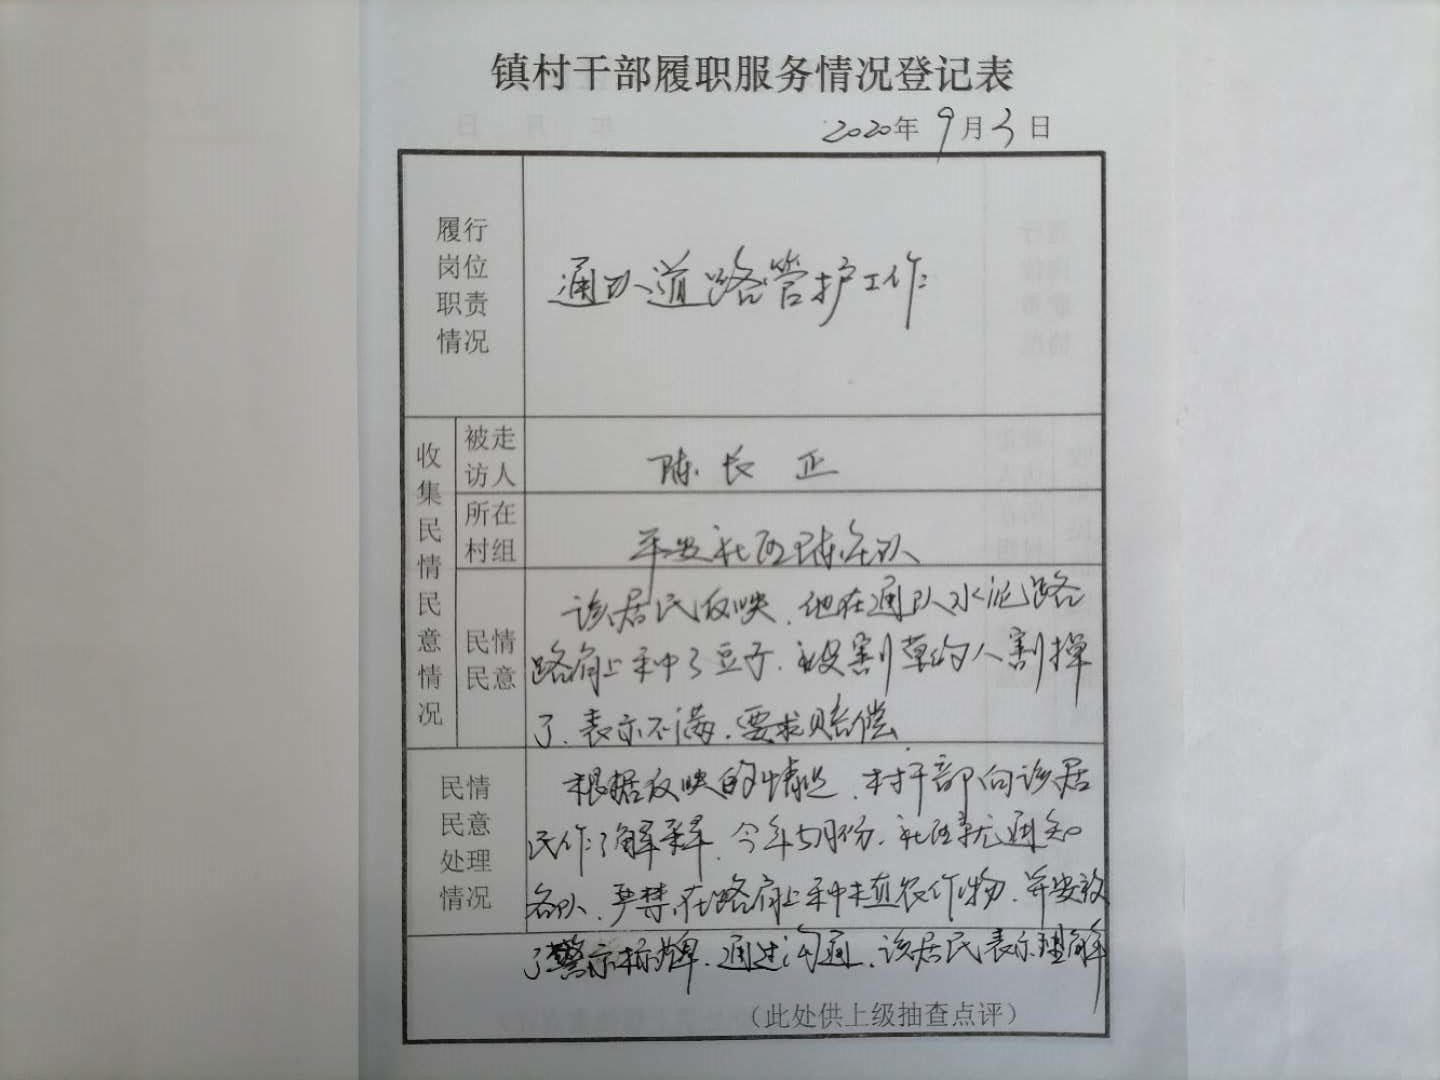 镇村干部履职服务情况登记表
2020年9月3日
履行
岗位
职责
情况
通队道路管护工作:
收集民情民意情况
被走
访人
陈长正
所在
村组
平安社区陈庄队
民情
民意
该居民反映、他在通队水泥路
路肩上种了豆子、被割草的人割掉
了、表示不满、要求赔偿
民情
民意
处理
情况
根据反映的情况、村干部向该居
民作了解释、今年5月份、社区就通知
各队、严禁在路肩上种植农作物、并安放
了警示标牌、通过沟通、该居民表示理解
(此处供上级抽查点评)